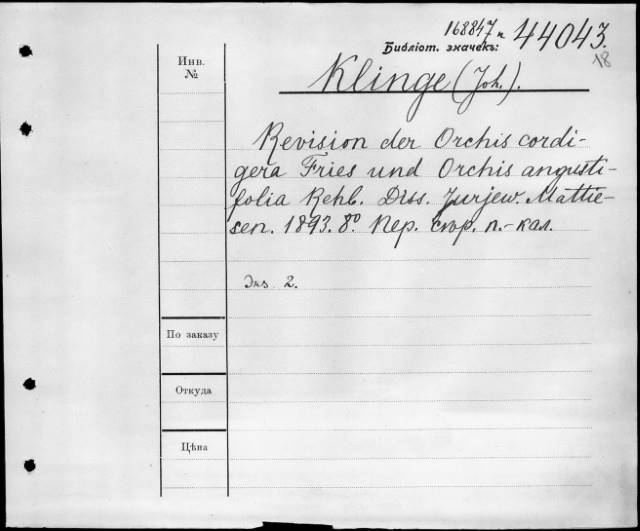 168847 и 44043.
Библіот. значекъ:
18
Инв.
№
Klinge (Joh.).
Revision der Orchis cordi-
gera Fries und Orchis angusti-
folia Rehb. Diss. Jurjew. Mattie-
sen. 1893. 8º Пер. скор. п.-кал.
Экз 2.
По заказу
Откуда
Цѣна